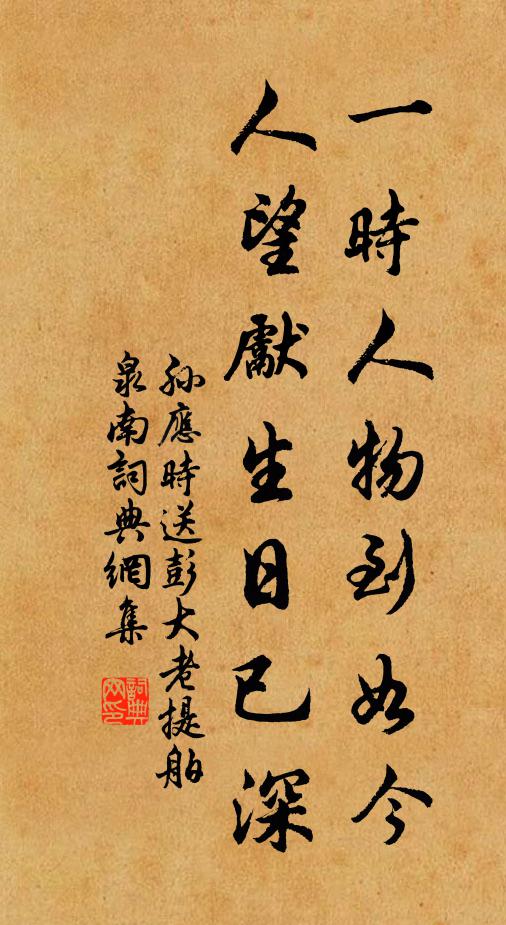 一時人物到如今
人望獻生日已深
孫應時送彭大老提舶
泉南詞典網集
詞典网印